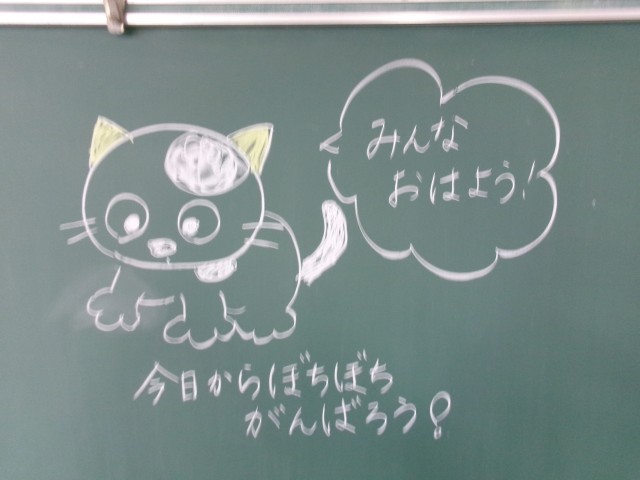 みんな
おはよう!
今日からぼちぼち
がんばろう!